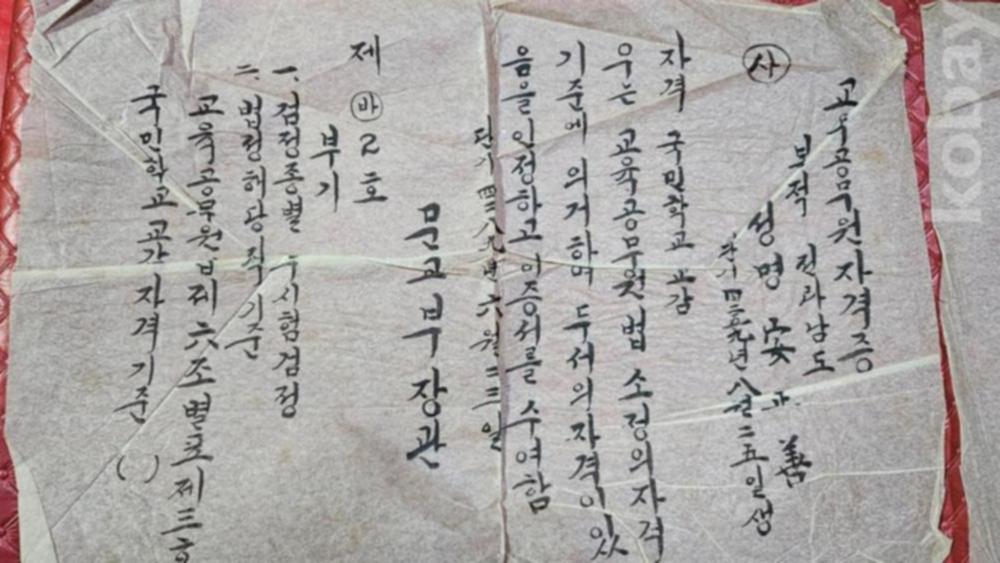 교육공무원자격증
㈔
본적 전라남도
성명 安 善
단기四二 九년 八월二五일생
자격 국민학교 교감
우는 교육공무원법 소정의 자격
기준에 의거하여 두서의 자격이 있
음을 인정하고 이증서를 수여함
단기四二八九년 六월二三일
문교부장관
제 ㉳ 2호
부기
一. 검정종별 무시험검정
二. 법정해당자격기준
교육공무원법 제六조 별표 제三호
국민학교 교감 자격기준 ( )
kobay